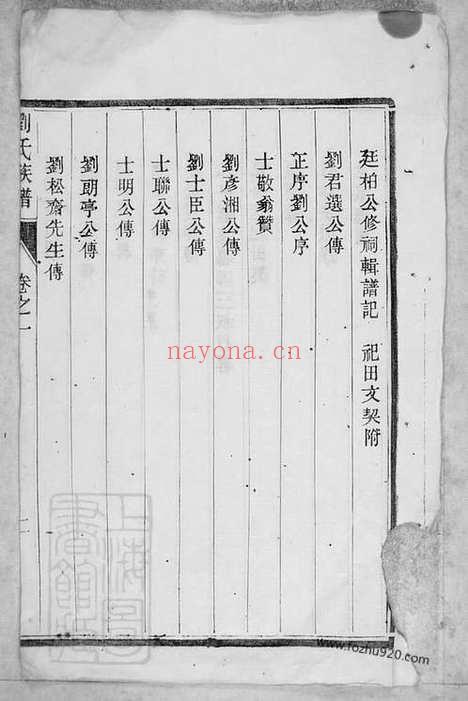 廷柏公修祠輯譜記　祀田文契附
劉君選公傳
正序劉公序
士敬翁贊
劉彥湘公傳
劉士臣公傳
士聯公傳
士明公傳
劉朗亭公傳
劉松齋先生傳
劉氏族譜
卷之一
二
nayona.cn
上海圖書館藏
www.fozhu920.com